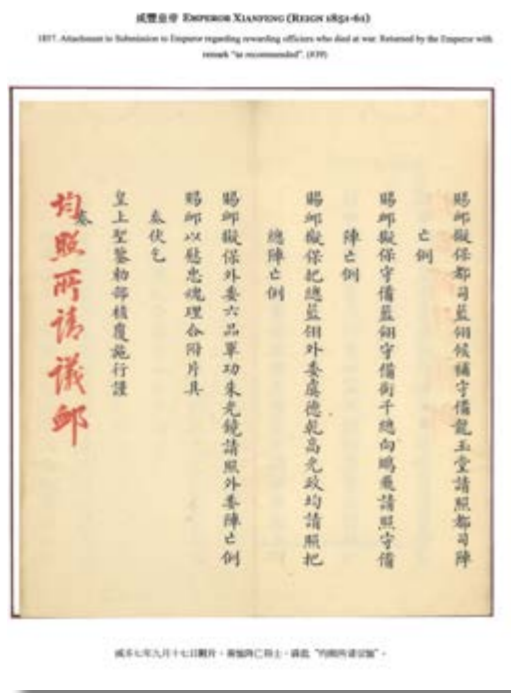 咸豐皇帝 EMPEROR XIANFENG (REIGN 1851-61)
1857. Attachment to Submission to Emperor regarding rewarding officers who died at war. Returned by the Emperor with
remark "as recommended". (#39)
賜卹擬保都司藍翎候補守備龍玉堂請照都司陣
亡例
賜卹擬保守備藍翎守備銜千總向鵬飛請照守備
陣亡例
賜卹擬保把總藍翎外委虞德乾高允政均請照把
總陣亡例
賜卹擬保外委六品軍功朱光鏡請照外委陣亡例
賜卹以慰忠魂理合附片具
奏伏乞
皇上聖鑒勅部核覆施行謹
奏
均照所請議卹
咸豐七年九月十七日附片，陣亡